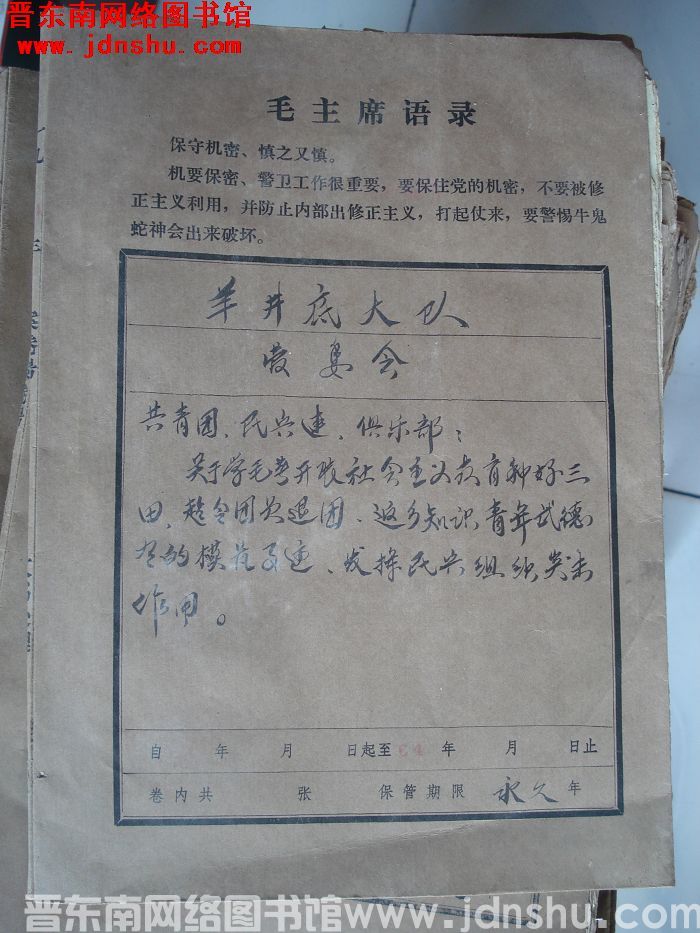 晋东南网络图书馆
www.jdnshu.com
毛主席语录
保守机密、慎之又慎。
机要保密、警卫工作很重要，要保住党的机密，不要被修
正主义利用，并防止内部出修正主义，打起仗来，要警惕牛鬼
蛇神会出来破坏。
羊井底大队
管委会
共青团、民兵连、俱乐部：
关于学毛著开展社会主义教育种好三
田、超令团员退团、返乡知识青年武德
的模范事迹、发挥民兵组织
作用。
自 年 月 日起至64年 月 日止
卷内共 张 保管期限 永久 年
晋东南网络图书馆www.jdnshu.com